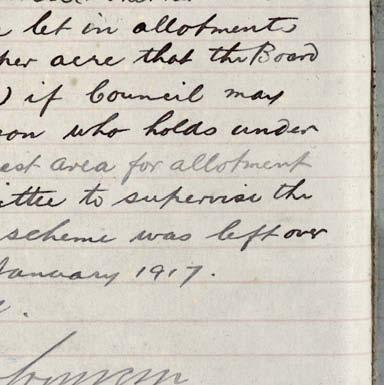 let in allotments
per acre that the Board
) if Council may
son who holds under
est area for allotment
ittee to supervise the
scheme was left over
January 1917.